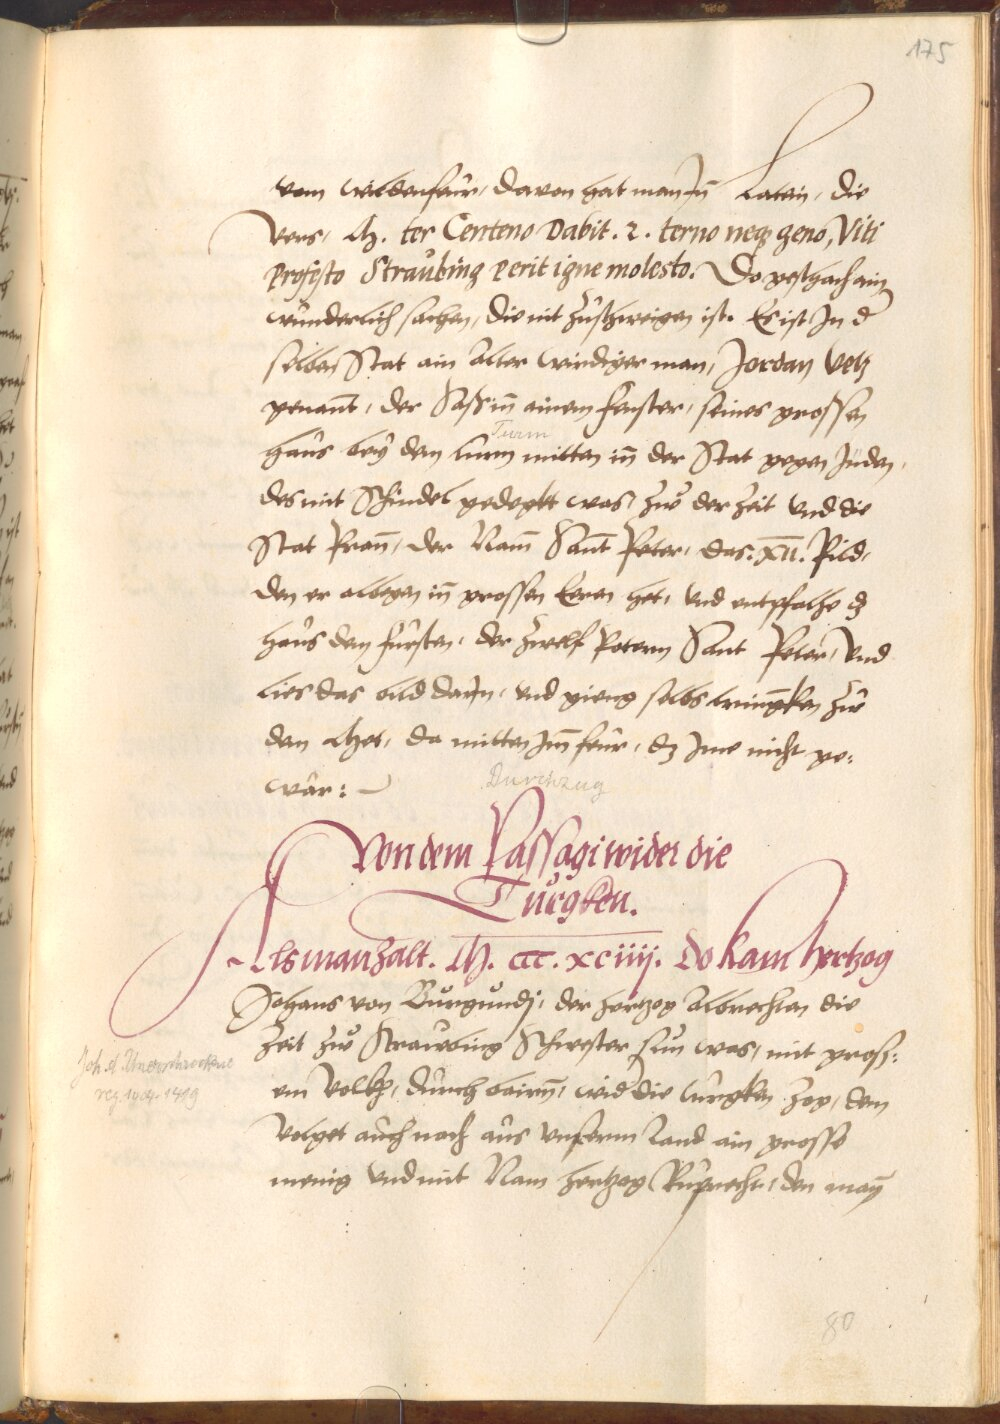 175
vom wildenfeur, davon hat man jn̄ Latein, die
Vers, M. ter Centeno Dabit. 2. terno neqz geno, Viti
Profesto Straubing perit igne molesto. Do geschach ain
wunderlich sachen, die nit zuschweigen ist. Es ist Jn d
selben Stat ain alter wirdiger man, Jordan Vetz
genan̄t, der Sass in̄ ainem fenster, seines grossen
Turm
haus bey dem turm mitten in̄ der Stat gegen Juden,
des mit Schindel gedeckt was, zw der zeit Vnd die
Stat Pran̄, der Nam̄ San̄t Peter, das .XII. Pild,
den er albegen in̄ grossen Eeren het, vnd entpfalhe dz
haus dem fursten, der zwelf Potern Sant Peter, Vnd
lies das bild darjn, vnd gieng selbs trin̄gken zw
dem Met, da mitten Jm̄ feur, dz jme nicht ge:
war:
Durchzug
Von dem Passagi wider die
Turgken.
Als man zalt. M. CCC. XCIIIJ. do kam hertzog
Johans von Burgundj, der hertzog Albrechten die
Zeit zw Straubing Schwester sun was, mit gross:
Joh. d. Unerschrockene
reg. 1404-1419
em Volkh, durch bairn̄, wid die turgken zog, dem
Volget auch nach aus vnserm Land ain grosse
menig vnd mit Nam hertzog Ruprecht, den man̄
80